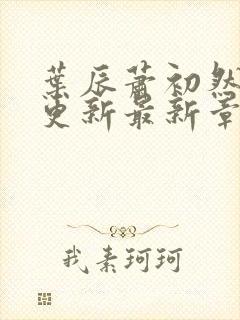 葉辰蕭初然
更新最新章
我素珂珂